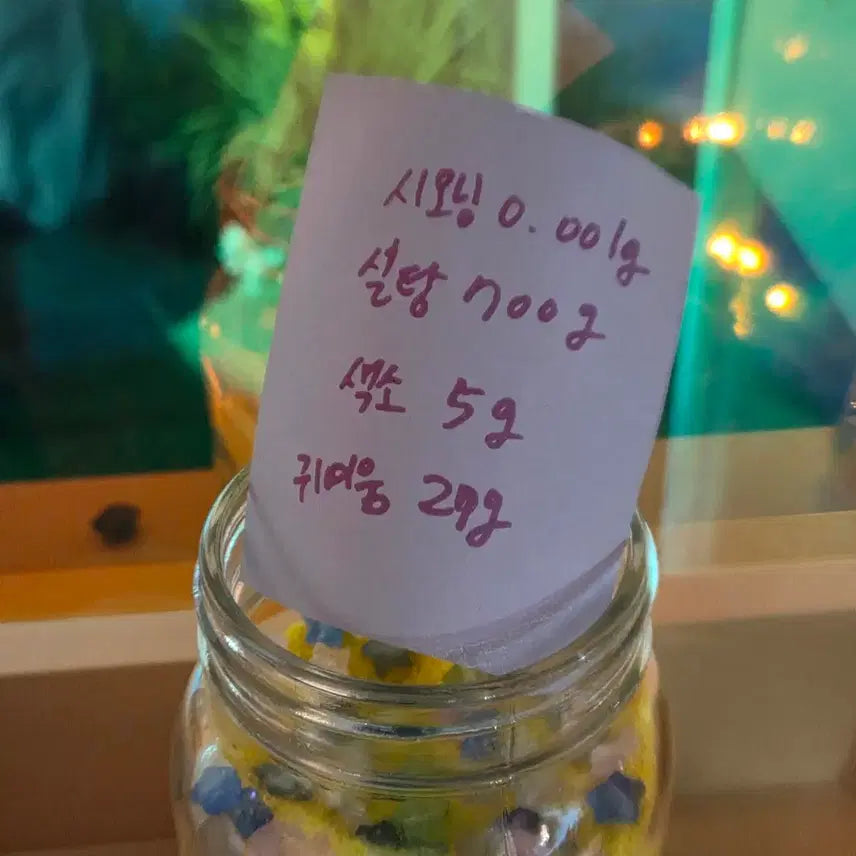 시오닝 0.001g
설탕 700g
색소 5g
귀여움 27g